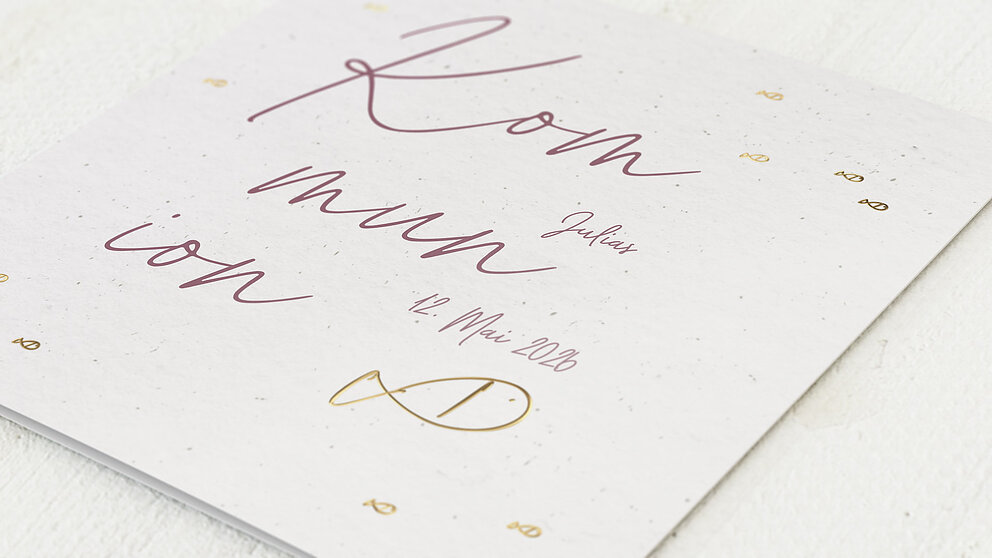 Kom
mun
ion
Julias
12. Mai 2026